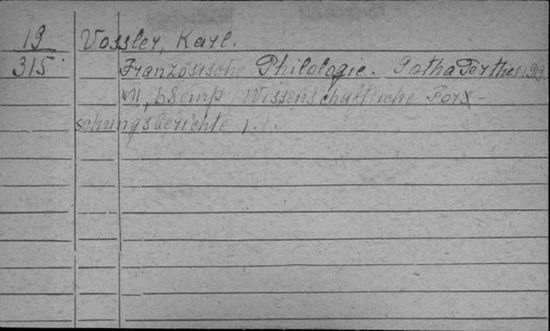 19 Vossler, Karl.
315. Französische Philologie. Gotha Perthes 1919
VII, 68 ‹Wissenschaftliche Forz-
schungsberichte 1.